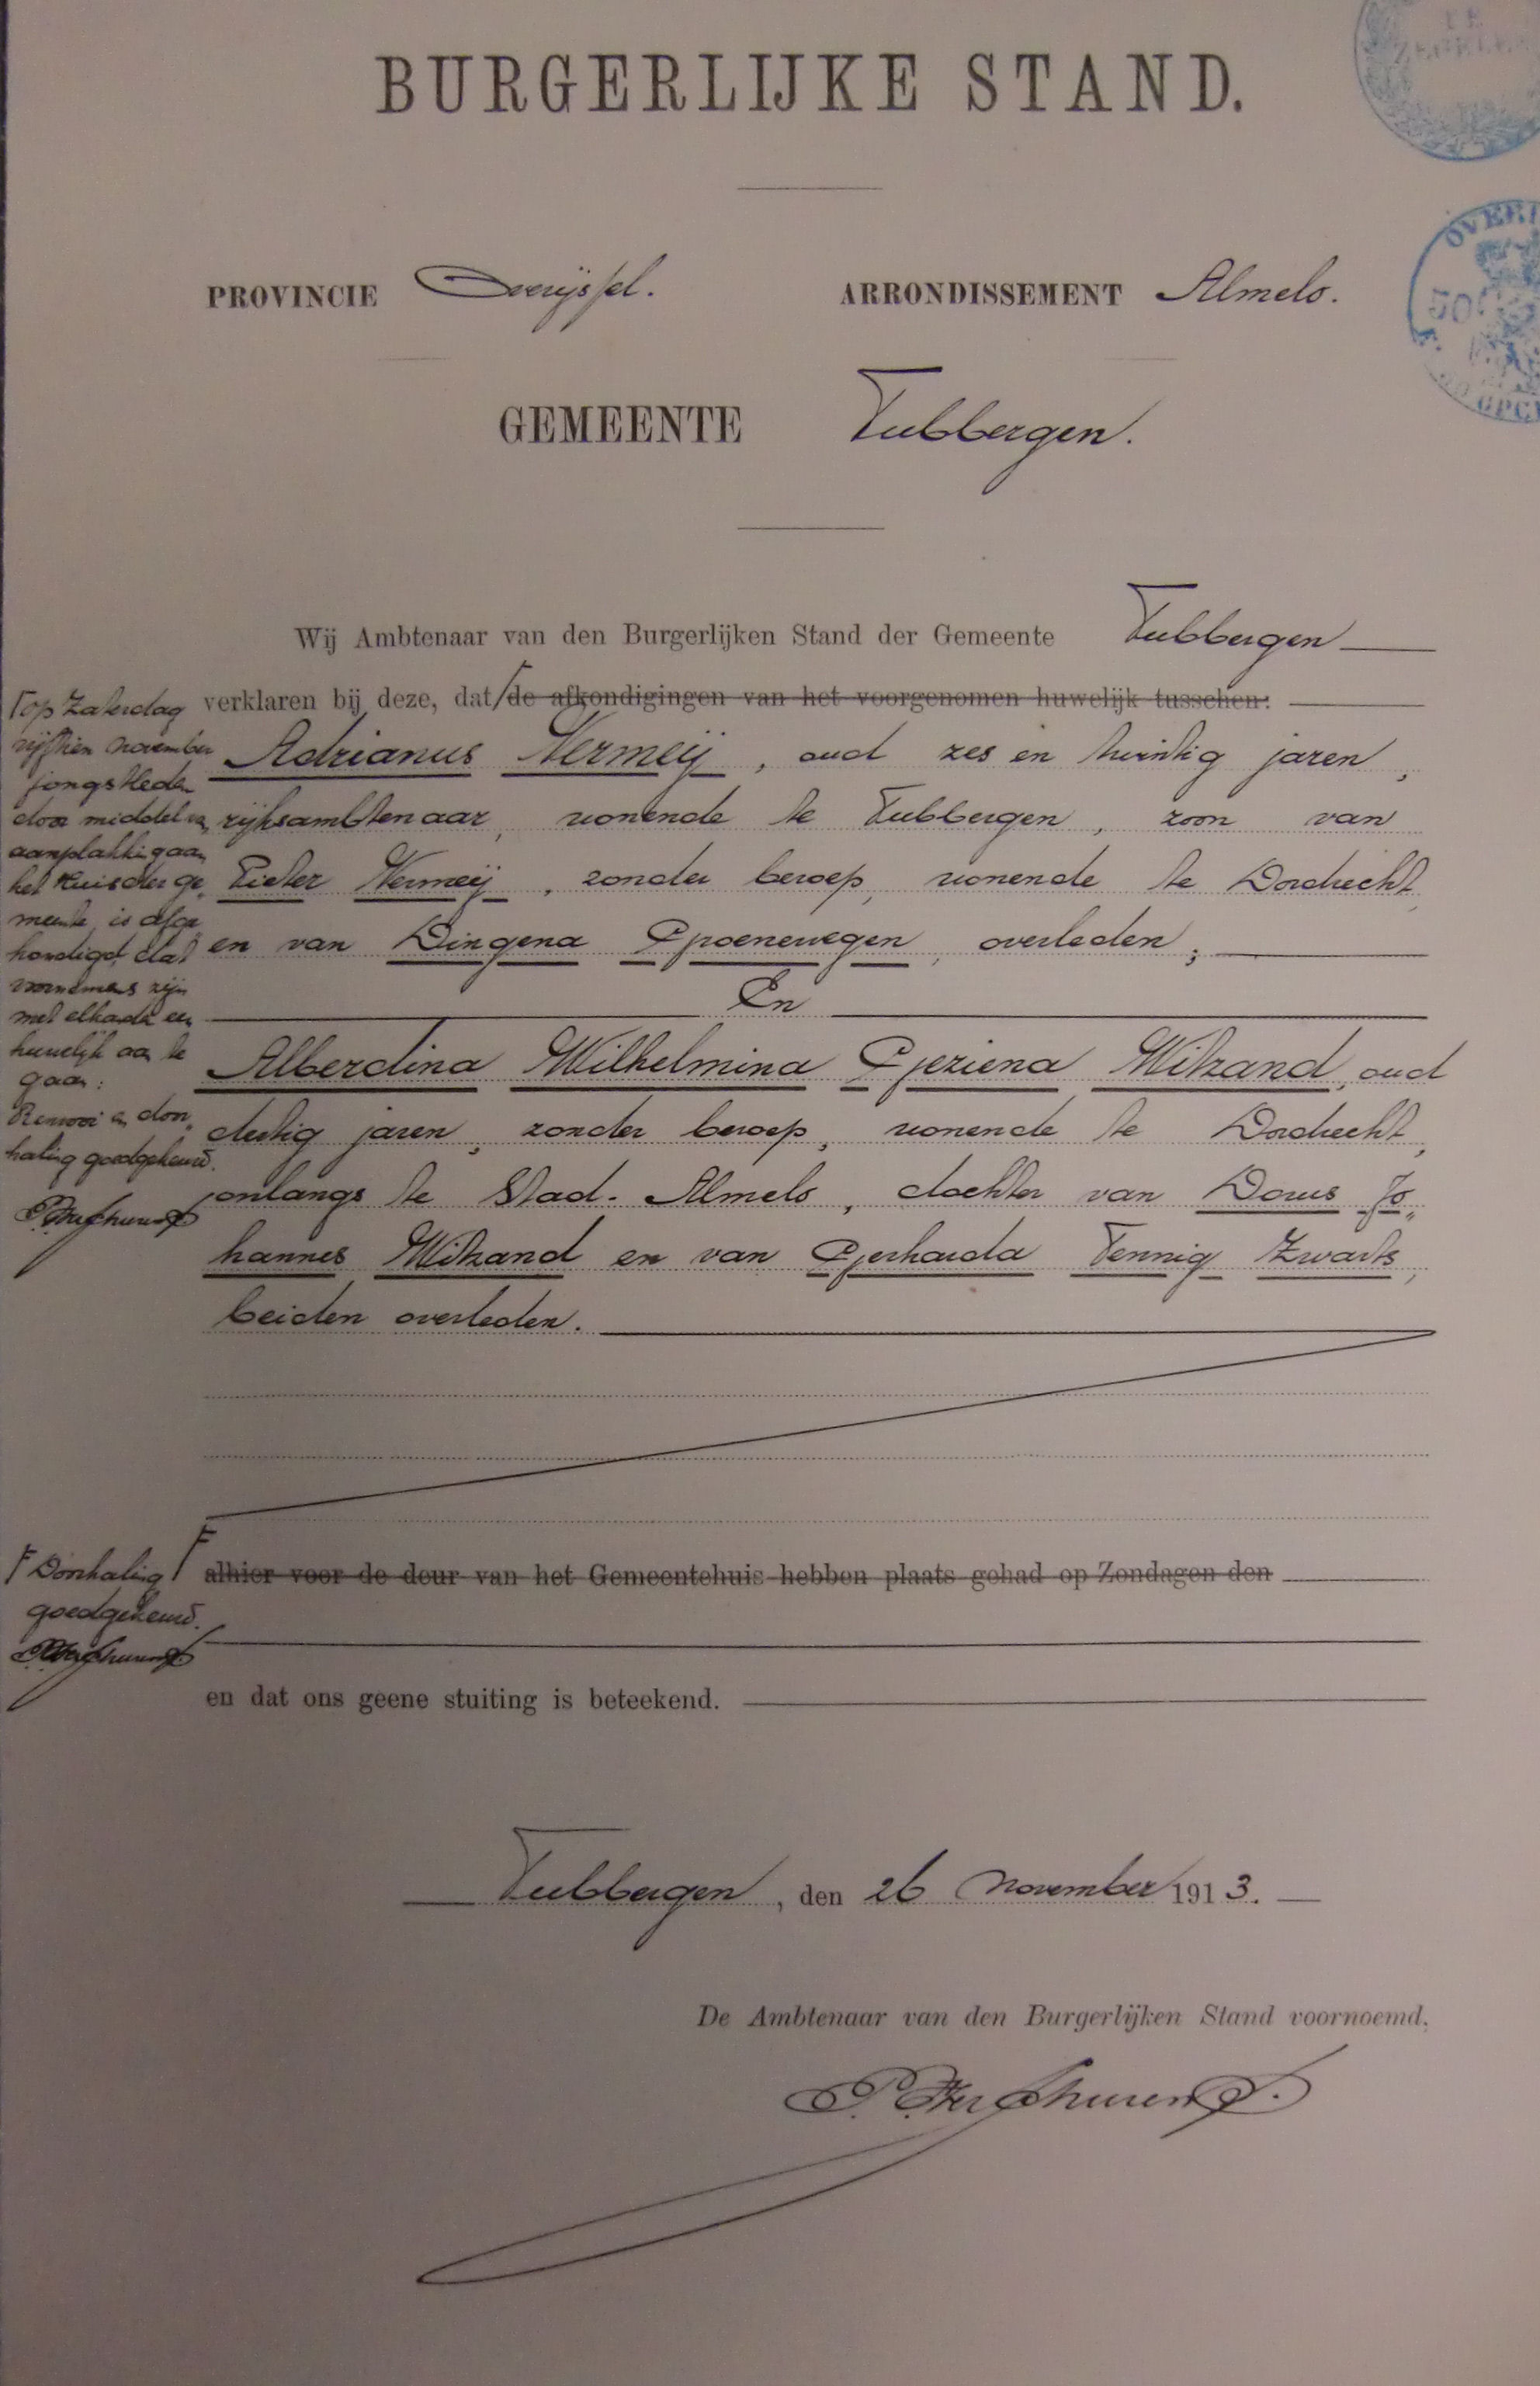 BURGERLIJKE STAND.
TE
ZEGELEN
OVERIJ
50
OPC
PROVINCIE Overijssel.
ARRONDISSEMENT Almelo.
GEMEENTE Tubbergen.
Wij Ambtenaar van den Burgerlijken Stand der Gemeente Tubbergen
verklaren bij deze, dat de afkondigingen van het voorgenomen huwelijk tusschen:
op Zaterdag
vijftien November
jongstleden
door middel van
aanplakking aan
het Huis der ge„
meente, is afge„
kondigd, dat
voornemens zijn
met elkander een
huwelijk aan te
gaan:
Renvooi en door„
haling goedgekeurd.
Adrianus Vermeij, oud zes en twintig jaren,
rijksambtenaar, wonende te Tubbergen, zoon van
Pieter Vermeij, zonder beroep, wonende te Dordrecht,
en van Dingena Groenewegen, overleden;
En
Alberdina Wilhelmina Geziena Witzand, oud
dertig jaren, zonder beroep, wonende te Dordrecht,
onlangs te Stad-Almelo, dochter van Dorus Jo„
hannes Witzand en van Gerharda Tennig Zwarts,
beiden overleden.
Doorhaling
goedgekeurd.
alhier voor de deur van het Gemeentehuis hebben plaats gehad op Zondagen den
en dat ons geene stuiting is beteekend.
Tubbergen, den 26 November 1913.
De Ambtenaar van den Burgerlijken Stand voornoemd.